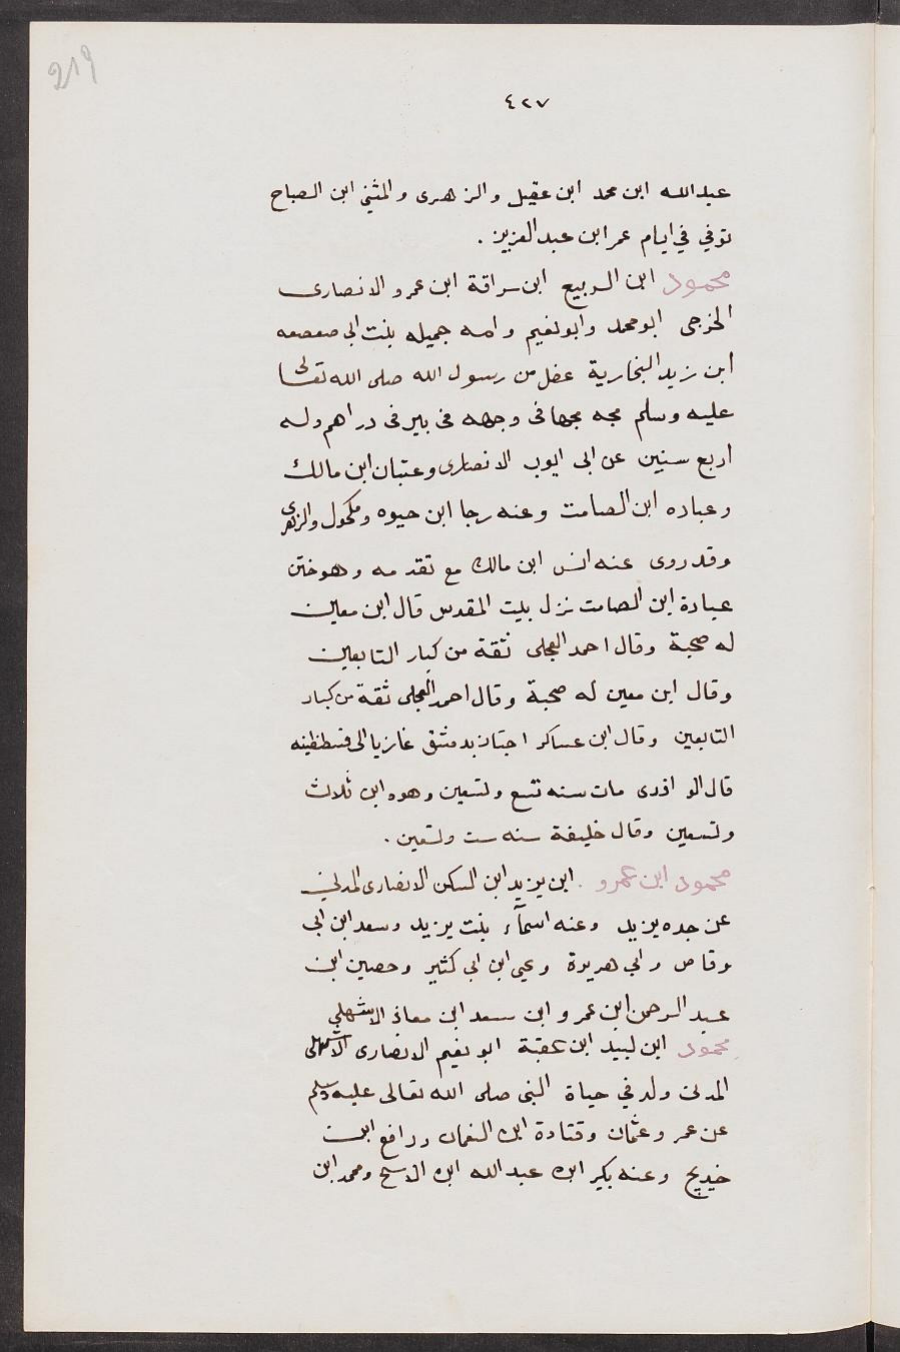 219
٤٢٧
عبدالله ابن محمد ابن عقيل والزهرى والمثنى ابن الصباح
توفي في ايام عمر ابن عبدالعزيز .
محمود ابن الربيع ابن سراقة ابن عمرو الانصارى
الخزجى ابومحمد وابونعيم وامه جميله بنت ابى صعصعه
ابن زيد النجارية عقل من رسول الله صلى الله تعالى
عليه وسلم مجه مجها فى وجهه فى بير فى دراهم وله
اربع سنين عن ابى ايوب الانصارى وعتبان ابن مالك
وعباده ابن الصامت وعنه رجا ابن حيوه ومكحول والزهرى
وقد روى عنه انس ابن مالك مع تقدمه وهو ختن
عبادة ابن الصامت نزل بيت المقدس قال ابن معين
له صحبة وقال احمد العجلى ثقة من كبار التابعين
وقال ابن معين له صحبة وقال احمد العجلى ثقة من كبار
التابعين وقال ابن عساكر اجتاز بدمشق غازيا الى قسطنطينه
قال الواقدى مات سنه تسع وتسعين وهوه ابن ثلاث
وتسعين وقال خليفة سنه ست وتسعين .
محمود ابن عمرو . ابن يزيد ابن السكن الانصارى المدني
عن جده يزيد وعنه اسمآء بنت يزيد وسعد ابن ابي
وقاص وابي هريرة وعنه يحيى ابن ابي كثير وحصين ابن
عبد الرحمن ابن عمرو ابن سعد ابن معاذ الاشهلي
محمود ابن لبيد ابن عقبة ابو نعيم الانصارى الاشهلى
المدنى ولد في حياة النبى صلى الله تعالى عليه وسلم
عن عمر وعثمان وقتادة ابن النعمان ورافع ابن
خديج وعنه بكير ابن عبدالله ابن الاشج ومحمد ابن